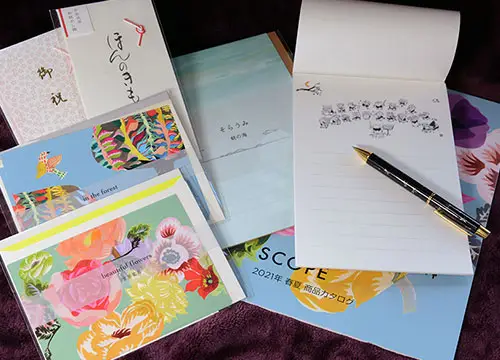 御祝
ほんのきも
そらうみ
in the forest
beautiful flowers
SCOPE
2021年 春夏 商品カタログ